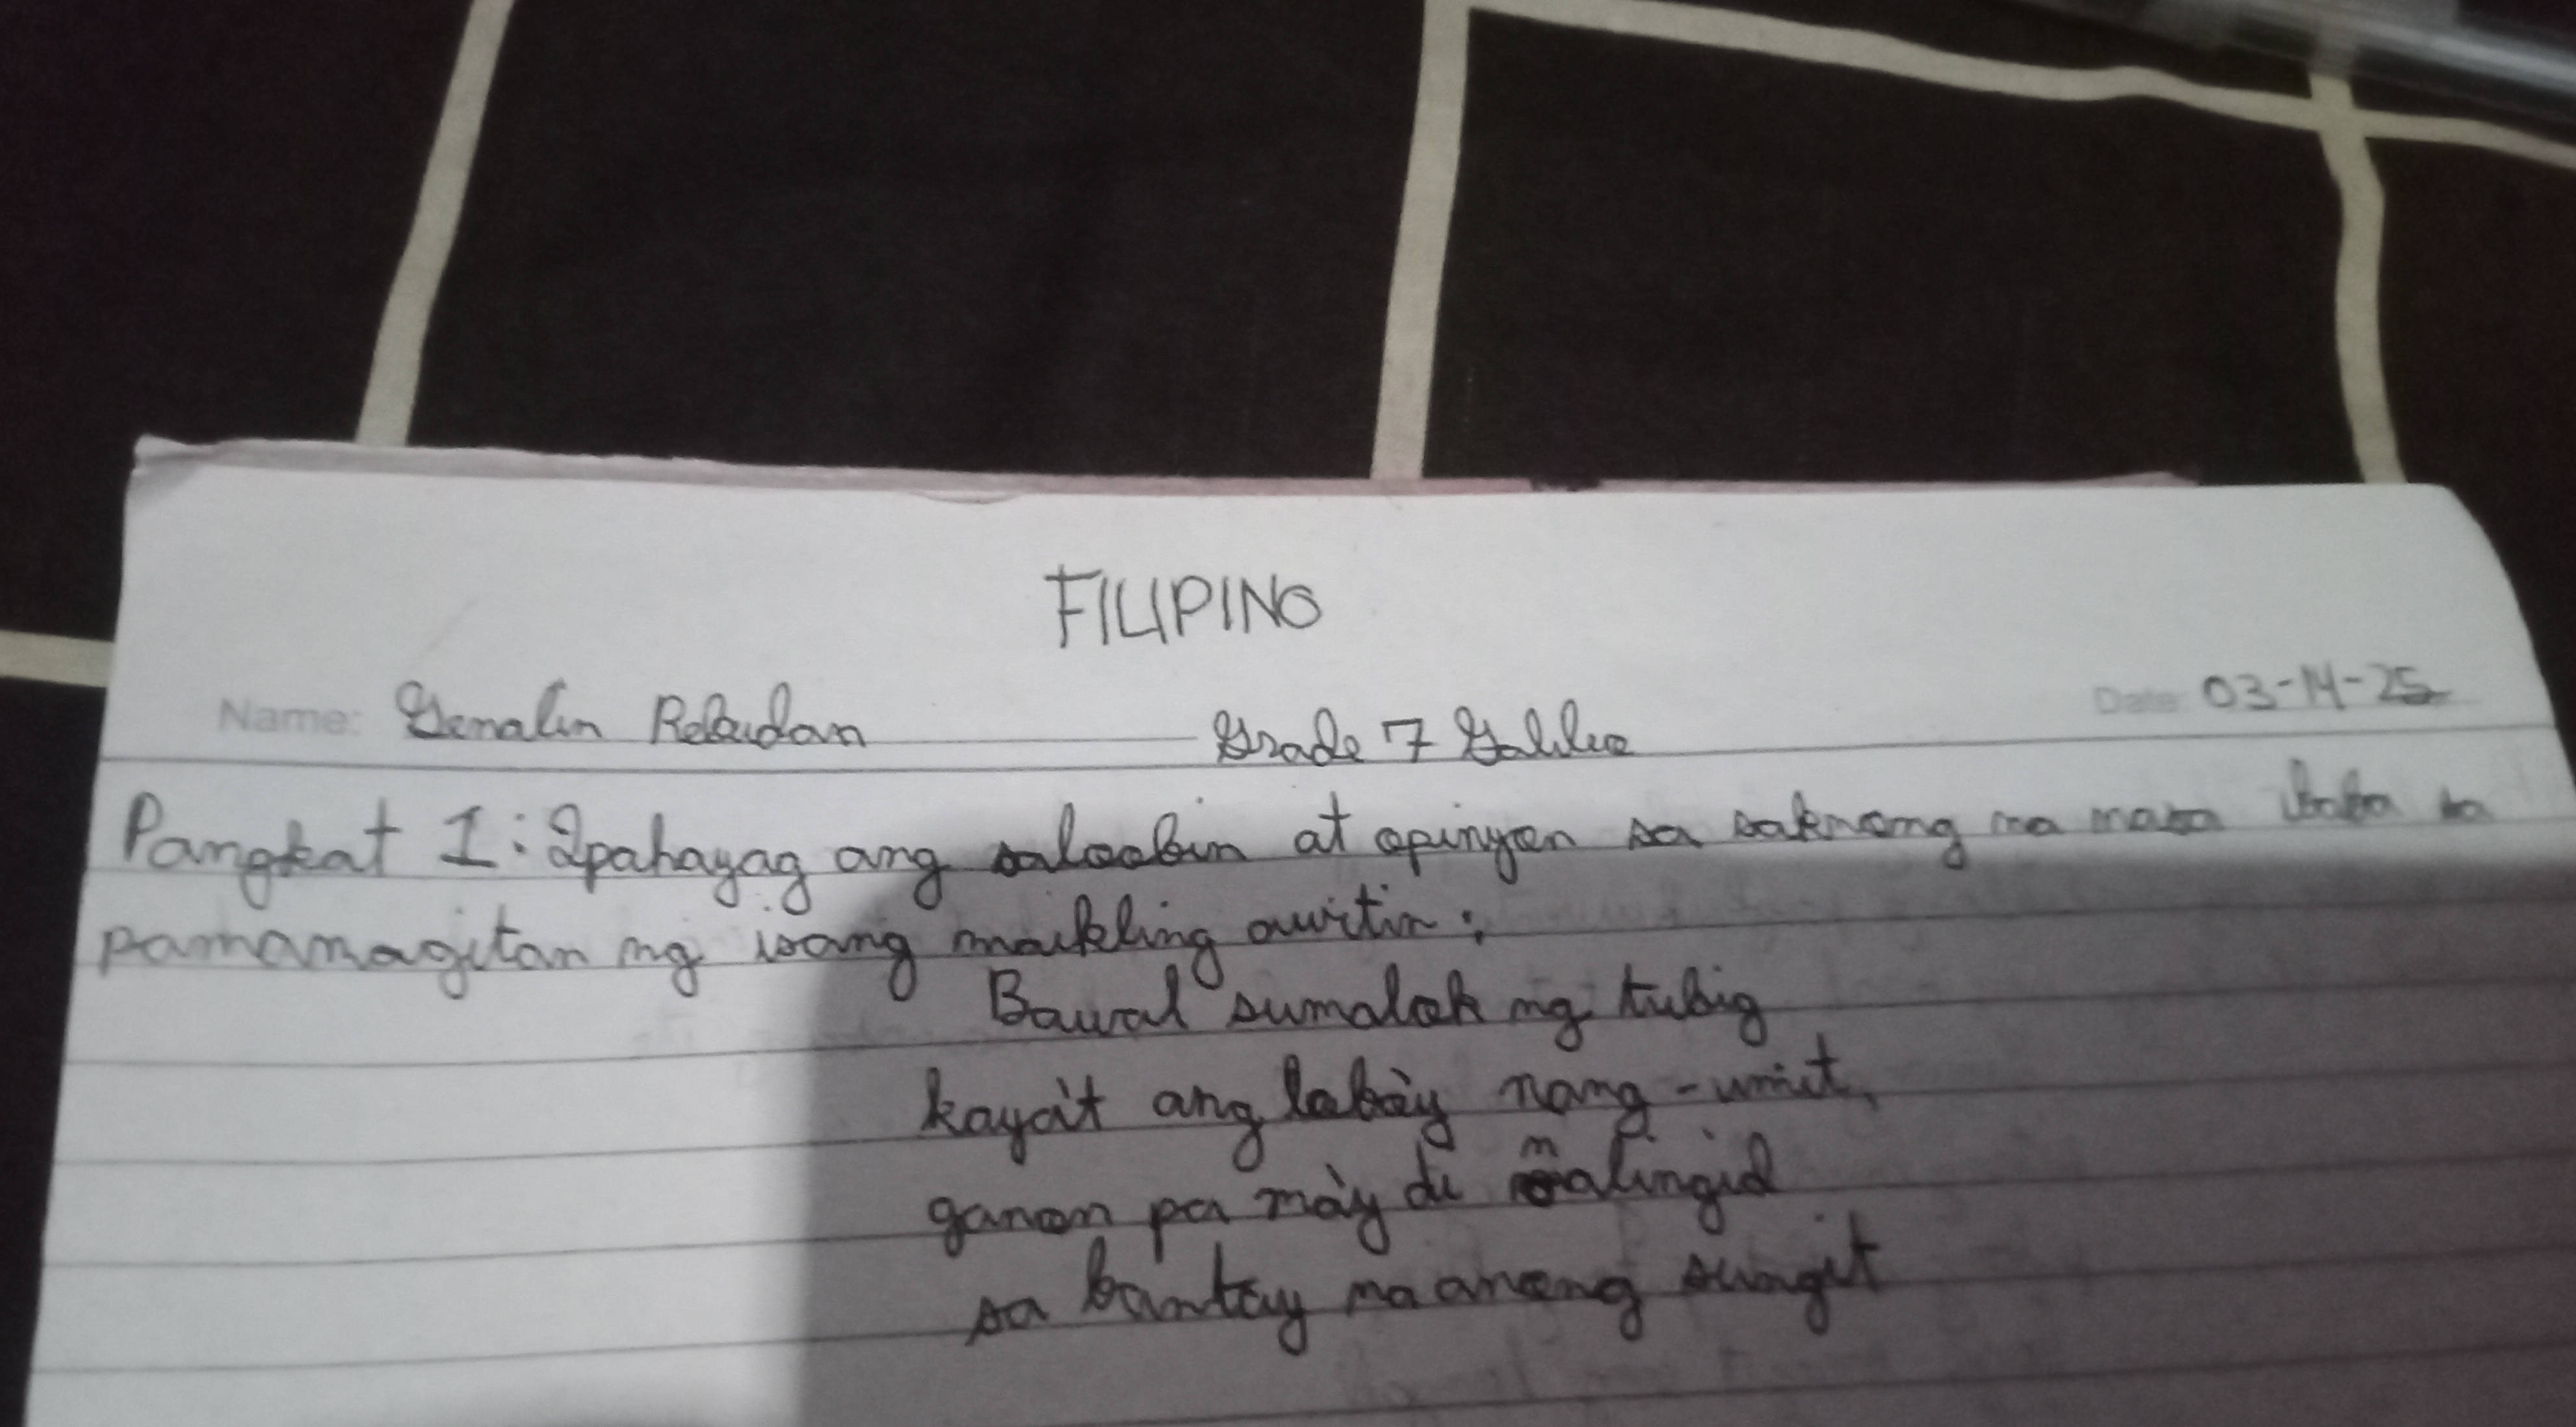 FILIPINO
Name: Genalin Rebudan Grade 7 Galileo Date: 03-14-25
Pangkat I: Ipahayag ang saloobin at opinyon sa saknong na nasa ibaba sa
pamamagitan ng isang maikling awitin:
Bawal sumalok ng tubig
kaya't ang laba'y nang-umit,
ganon pa ma'y di malingid
sa bantay na anong sungit